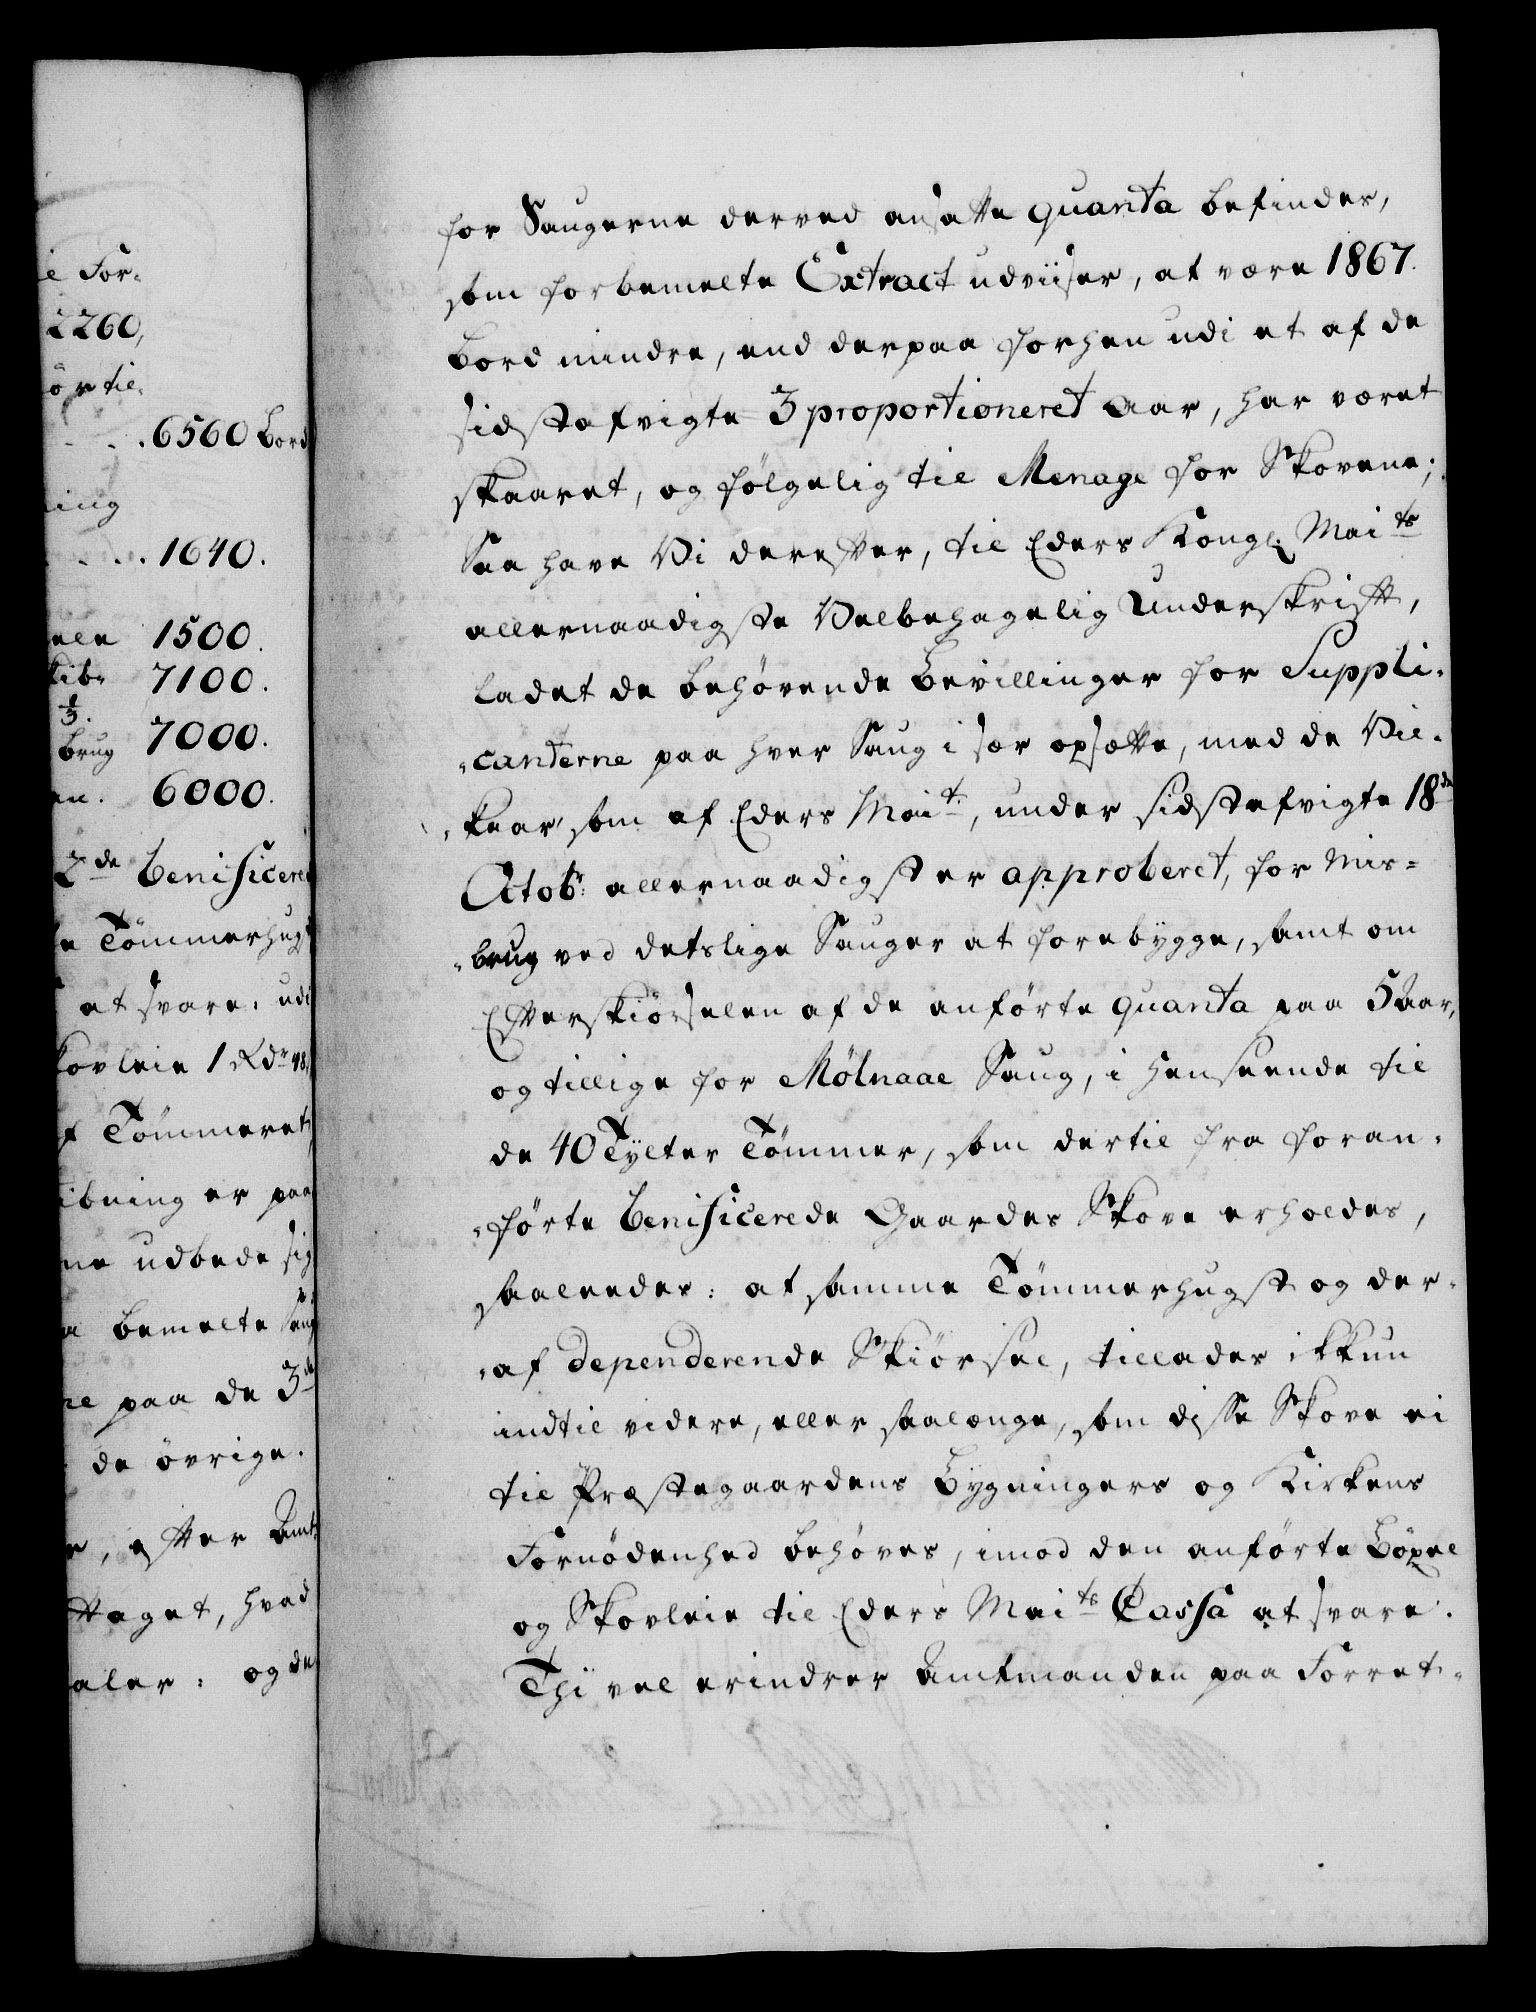 ie For-
2260,
ör til.
. . 6560 Bord
ning
. . . 1640.
1500.
7100.
1/3.
brug 7000.
en. 6000.
2de benificered
Tömmerhugst
at svare: udi
kovleie 1 Rdr 48
Tömmeret
er paa
udbede sig
bemelte Saug
paa de 3de
de övrige.
efter Amt-
taget, hvad
aler: og de
for Saugerne derved ansatte quanta befindes,
som forbemelte Extract udviiser, at være 1867.
Bord mindre, end derpaa forhen udi et af de
sidstafvigte 3 proportioneret Aar, har været
skaaret, og fölgelig til Menage for Skovene;
Saa have Vi derefter, til Eders Kongl: Maits
allernaadigste Velbehagelig Underskrift,
ladet de behövende Bevillinger for Suppli-
-canterne paa hver Saug i sær opsætte, med de Vil-
-kaar, som af Eders Mait., under sidstafvigte 18de
Octobr: allernaadigst er approberet, for Mis-
-brug ved detslige Sauger at forebygge, samt om
Efterskiörselen af de anförte quanta paa 5 Aar,
og tillige for Mölnaae Saug, i Henseende til
de 40 Tylter Tömmer, som dertil fra foran-
-förte benificerede Gaardes Skove erholdes,
saaleedes: at samme Tömmerhugst og der-
-af dependerende Skiörsel, tillades ikkun
indtil videre, eller saalænge, som disse Skove ei
til Præstegaardens Bygningers og Kirkens
Fornödenhed behöves, imod den anförte Böxel
og Skovleie til Eders Maits Cassa at svare.
Thi vel erindrer Amtmanden paa Forret-